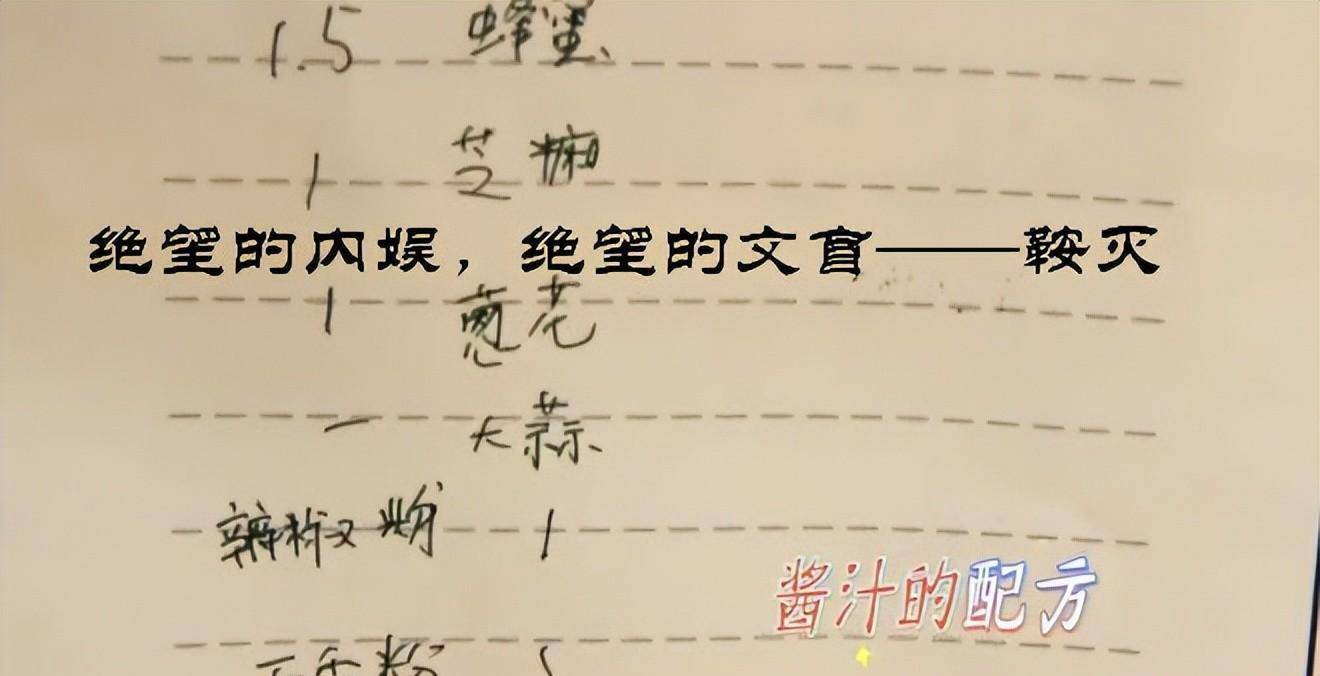 1.5 蜂蜜
1 芝
绝望的内娱，绝望的文盲——鞍灭
1 蔥花
一 大蒜
椒 粉 1
酱汁的配方
粉